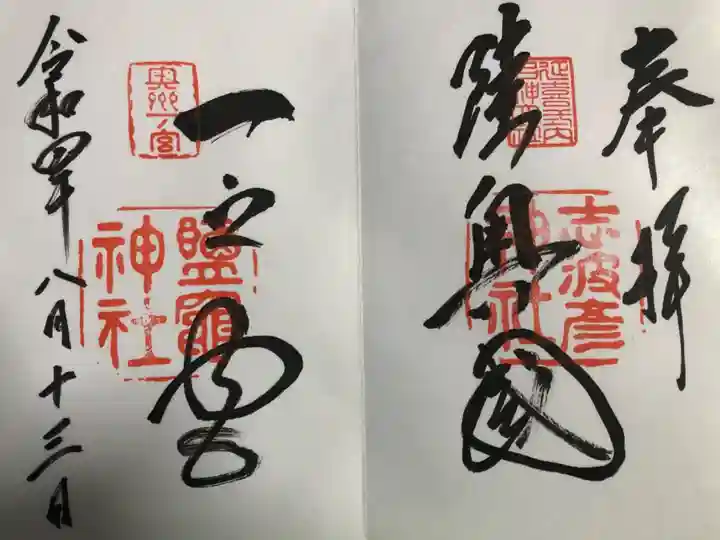 奉拝
陸奥国
志波彦
神社
一之宮
奥州一宮
鹽竈
神社
令和四年八月十三日